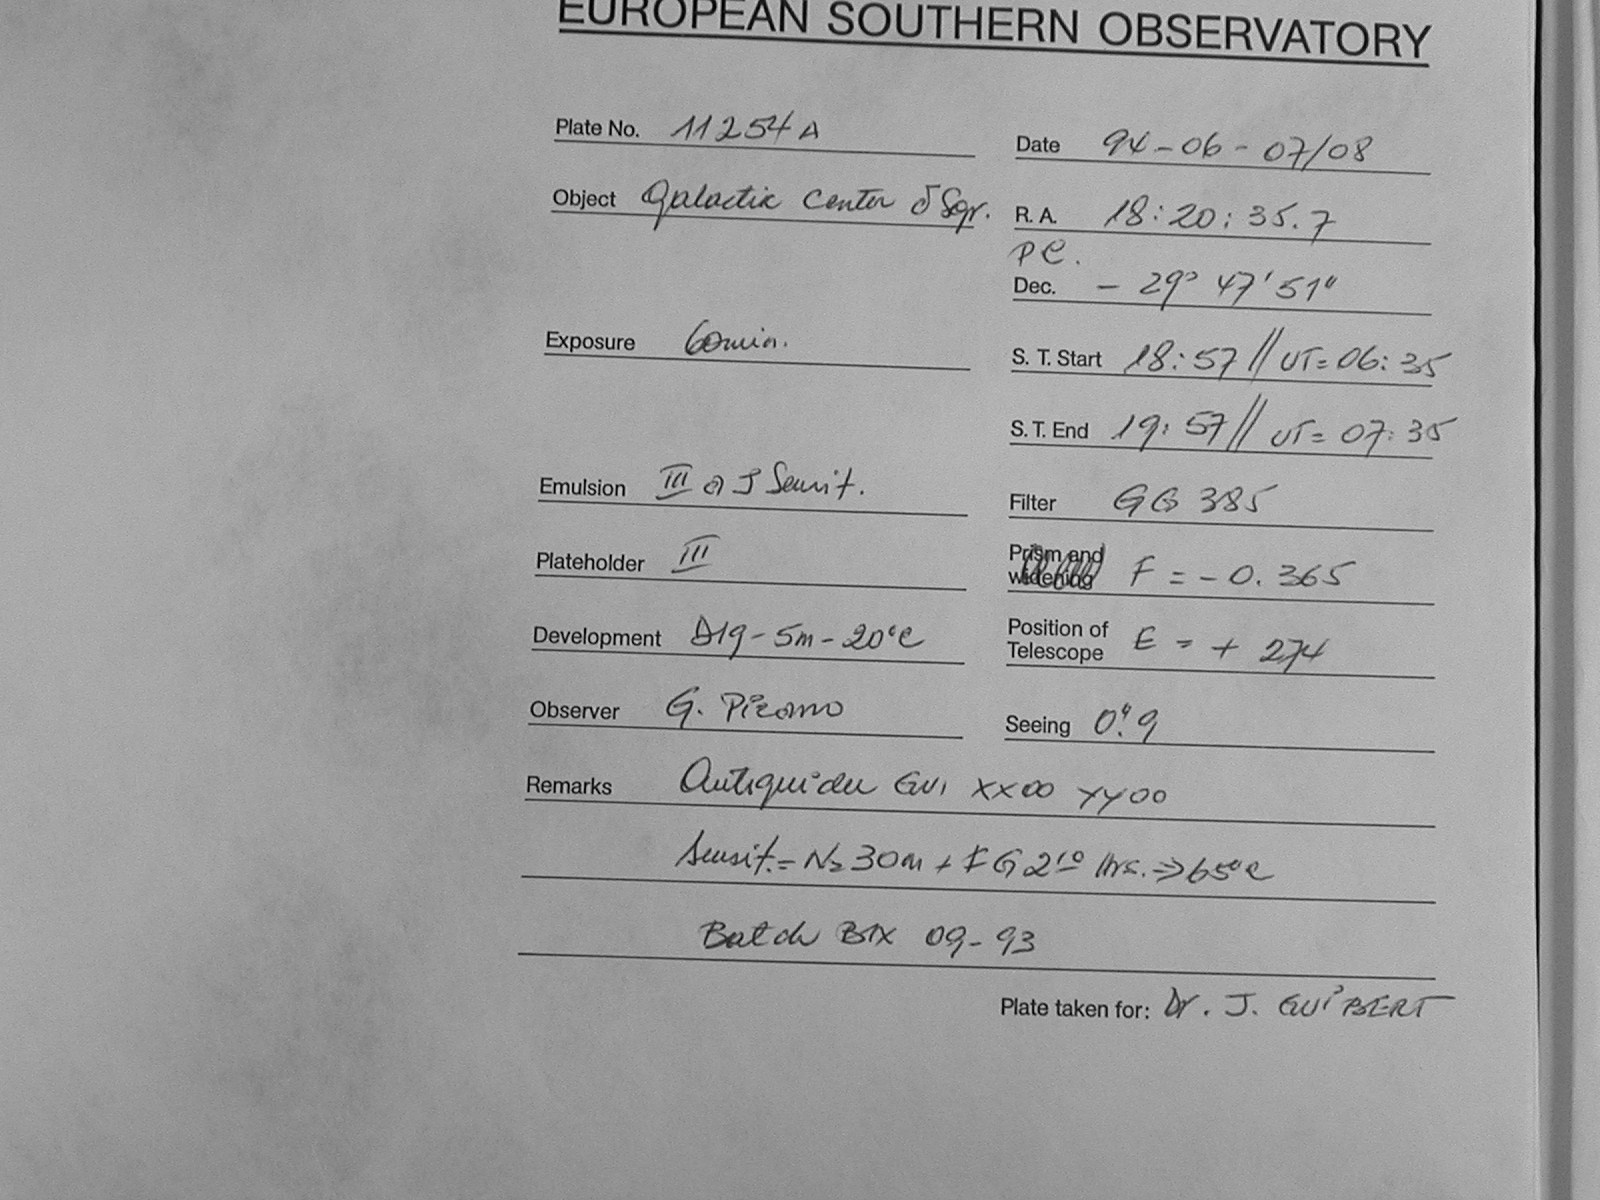 EUROPEAN SOUTHERN OBSERVATORY
Plate No. 11254A
Date 94-06-07/08
Object Galactic Center δ Sgr.
R. A. 18:20:35.7
P.C.
Dec. - 29° 47' 51"
Exposure 60min.
S. T. Start 18:57 // UT=06:35
S. T. End 19:57 // UT=07:35
Emulsion III a J Sensit.
Filter GG 385
Plateholder III
Prism and widening F = -0.365
Development D19-5m-20°C
Position of Telescope E = + 274
Observer G. Pizarro
Seeing 0".9
Remarks GUI XX00 YY00
Sensit.= N2 30m + FG 2 hrs. ⇒ 65°C
Batch 09-93
Plate taken for: Dr. J. GUIBERT